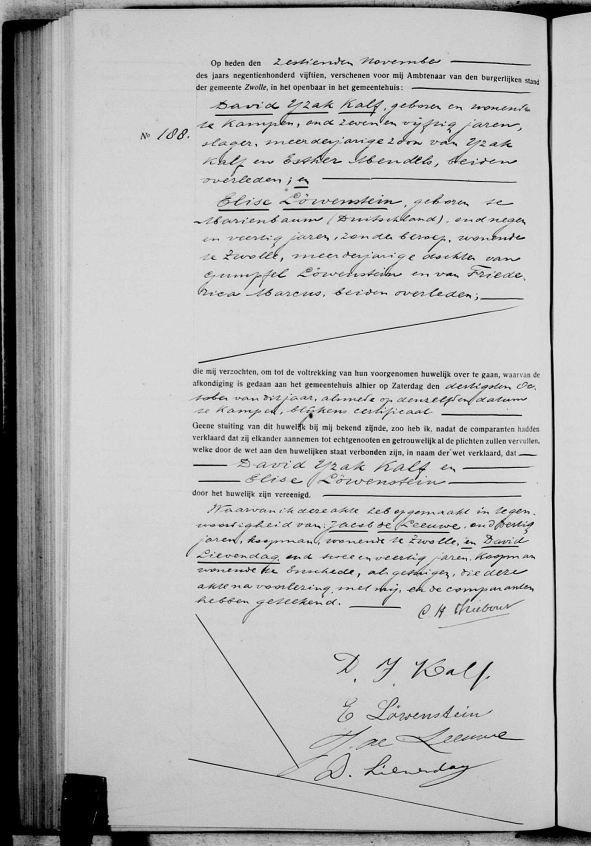 Op heden den zestienden November
des jaars negentienhonderd vijftien, verschenen voor mij Ambtenaar van den burgerlijken stand
der gemeente Zwolle, in het openbaar in het gemeentehuis:
David Yzak Kalf, geboren en wonende
te Kampen, oud zeven en vijftig jaren,
No 188.
slager, meerderjarige zoon van Yzak
Kalf en Esther Mendels, beiden
overleden; en
Elise Löwenstein, geboren te
Marienbaum (Duitschland), oud negen
en veertig jaren, zonder beroep, wonende
te Zwolle, meerderjarige dochter van
Gumpfel Löwenstein en van Friede-
rica Marcus, beiden overleden;
die mij verzochten, om tot de voltrekking van hun voorgenomen huwelijk over te gaan, waarvan de
afkondiging is gedaan aan het gemeentehuis alhier op Zaterdag den dertigsten Oc-
tober van dit jaar, alsmede op denzelfden datum
te Kampen, blijkens certificaat
Geene stuiting van dit huwelijk bij mij bekend zijnde, zoo heb ik, nadat de comparanten hadden
verklaard dat zij elkander aannemen tot echtgenooten en getrouwelijk al de plichten zullen vervullen,
welke door de wet aan den huwelijken staat verbonden zijn, in naam der wet verklaard, dat
David Yzak Kalf en
Elise Löwenstein
door het huwelijk zijn vereenigd.
Waarvan ik deze akte heb opgemaakt in tegen-
woordigheid van: Jacob de Leeuwe, oud dertig
jaren, koopman, wonende te Zwolle, en David
Lievendag, oud twee en veertig jaren, koopman
wonende te Enschede, als getuigen, die deze
akte na voorlezing met mij, en de comparanten
hebben geteekend.
D. Y. Kalf.
E Löwenstein
J. de Leeuwe
D. Lievendag